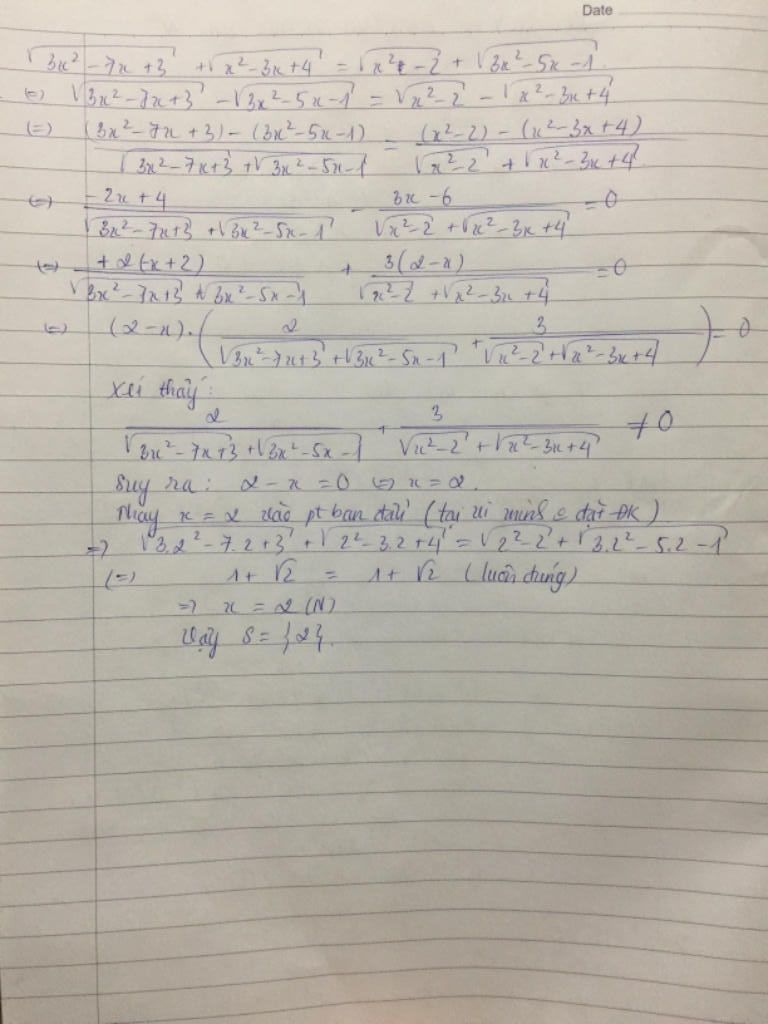 Date
√(3x² - 7x + 3) + √(x² - 3x + 4) = √(x² - 2) + √(3x² - 5x - 1)
(=) √(3x² - 7x + 3) - √(3x² - 5x - 1) = √(x² - 2) - √(x² - 3x + 4)
(=) ((3x² - 7x + 3) - (3x² - 5x - 1))/(√(3x² - 7x + 3) + √(3x² - 5x - 1)) = ((x² - 2) - (x² - 3x + 4))/(√(x² - 2) + √(x² - 3x + 4))
(=) (-2x + 4)/(√(3x² - 7x + 3) + √(3x² - 5x - 1)) - (3x - 6)/(√(x² - 2) + √(x² - 3x + 4)) = 0
(=) (+2(-x + 2))/(√(3x² - 7x + 3) + √(3x² - 5x - 1)) + (3(2 - x))/(√(x² - 2) + √(x² - 3x + 4)) = 0
(=) (2 - x).(2/(√(3x² - 7x + 3) + √(3x² - 5x - 1)) + 3/(√(x² - 2) + √(x² - 3x + 4))) = 0
Xét thấy:
2/(√(3x² - 7x + 3) + √(3x² - 5x - 1)) + 3/(√(x² - 2) + √(x² - 3x + 4)) ≠ 0
Suy ra: 2 - x = 0 (=) x = 2.
Thay x = 2 vào pt ban đầu (tại vì mình c đặt ĐK)
=> √(3.2² - 7.2 + 3) + √(2² - 3.2 + 4) = √(2² - 2) + √(3.2² - 5.2 - 1)
(=) 1 + √2 = 1 + √2 (luôn đúng)
=> x = 2 (N)
Vậy S = {2}.